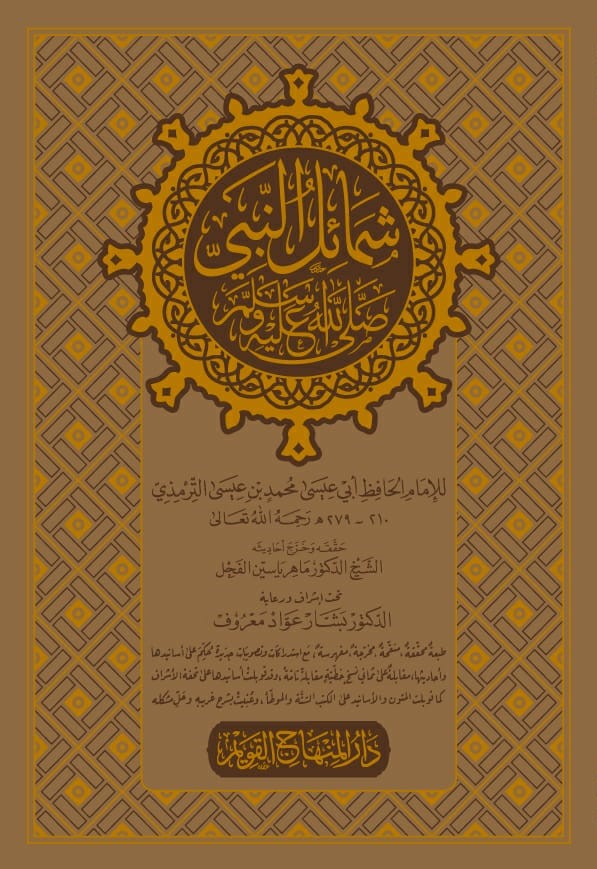 شَمَائِلُ النَّبِيِّ
صَلَّى اللهُ عَلَيْهِ وَسَلَّمَ
لِلإِمَامِ الحَافِظِ أَبِي عِيسَى مُحَمَّدِ بْنِ عِيسَى التِّرْمِذِيِّ
٢١٠ - ٢٧٩ هـ رَحِمَهُ اللهُ تَعَالَى
حَقَّقَهُ وَخَرَّجَ أَحَادِيثَهُ
الشَّيْخُ الدُّكْتُورُ مَاهِر يَاسِين الفَحْل
تحت إشراف ورعاية
الدُّكْتُورُ بَشَّار عَوَّاد مَعْرُوف
طبعةٌ محقَّقةٌ، منقَّحةٌ، مخرَّجةٌ، مفهرسةٌ، مع استدراكات وتصويبات جديدة تحكم على أسانيدها
وأحاديثها، مقابلة على ثماني نسخ خطيّة مقابلة تامّة، وقد قوبلت أسانيدها على تحفة الأشراف
كما قوبلت المتون والأسانيد على الكتب الستّة والموطّأ، وعُنِيَت بشرح غريبه وحلّ مشكله
دَارُ المِنْهَاجِ القَوِيمِ